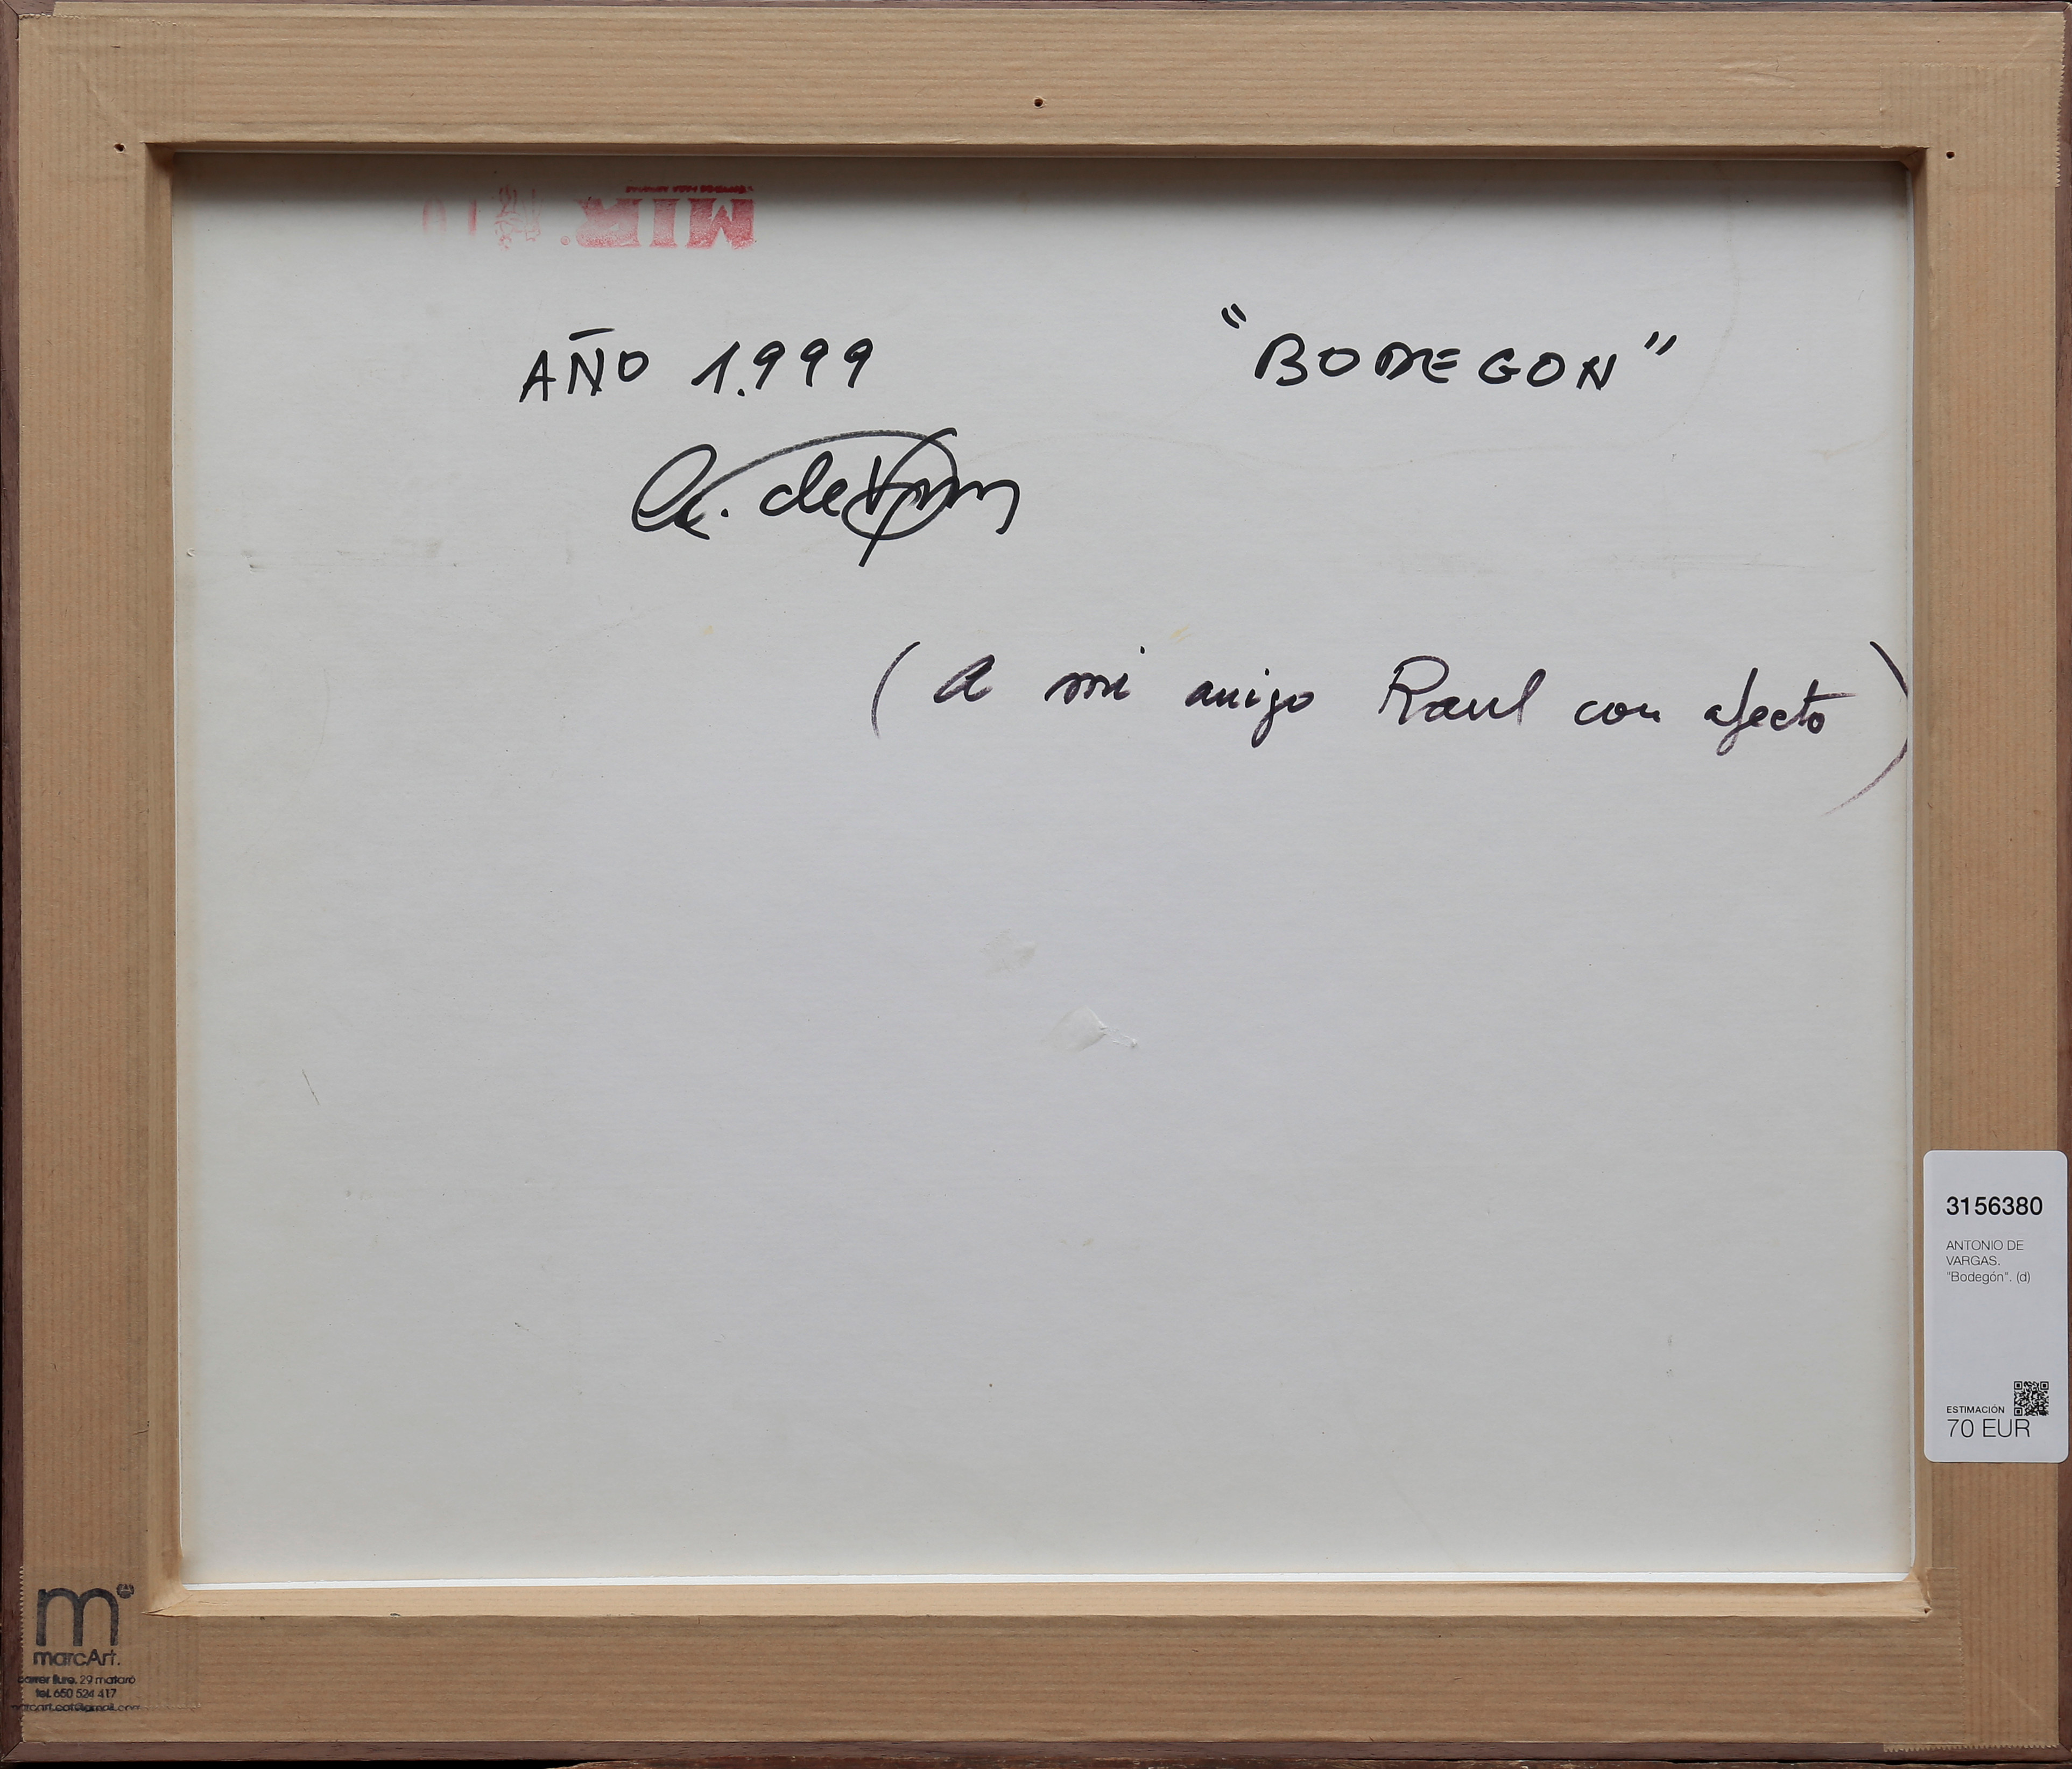 MIR.
AÑO 1.999
"BODEGON"
(A mi amigo Raul con afecto)
3156380
ANTONIO DE
VARGAS.
"Bodegón". (d)
ESTIMACIÓN
70 EUR
m
marcArt.
carrer lluro, 29 mataró
tel. 650 524 417
marcart.cat@gmail.com